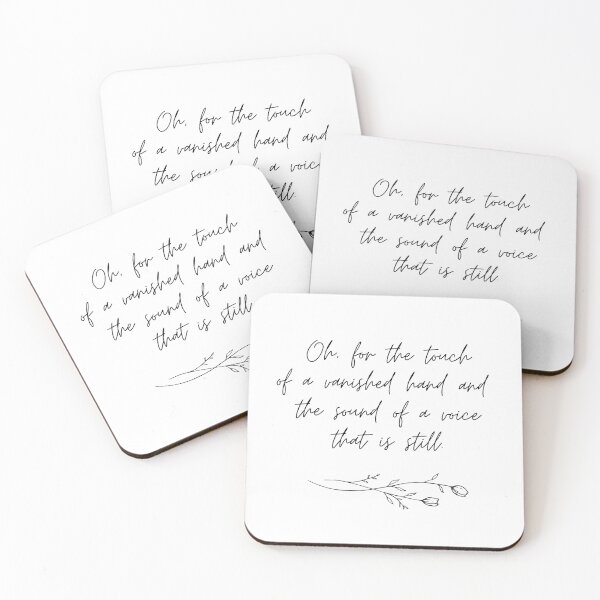 Oh, for the touch
of a vanished hand and
the sound of a voice
still.
Oh, for the touch
of a vanished hand and
the sound of a voice
that is still
Oh, for the touch
of a vanished hand and
the sound of a voice
that is still.
Oh, for the touch
of a vanished hand and
the sound of a voice
that is still.